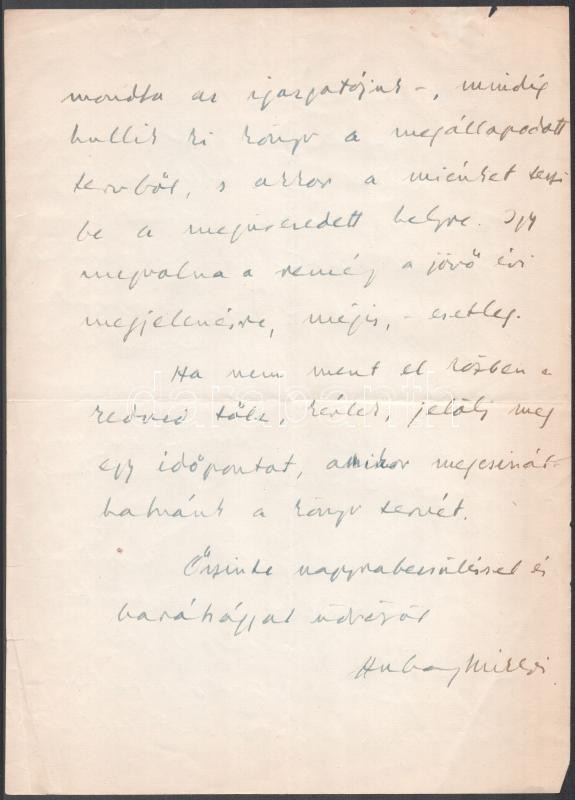 mondta az igazgatójuk –, mindig
hullik ki könyv a megállapodott
tervből, s akkor a miénket teszi
be a megüresedett helyre. Így
megvolna a remény a jövő évi
megjelenésre, mégis, – esetleg.
Ha nem ment el közben a
kedved tőle, kérlek, jelölj meg
egy időpontot, amikor megcsinál-
hatnánk a könyv tervét.
Őszinte nagyrabecsüléssel és
barátsággal üdvözöl
Hubay Miklós
darabanth